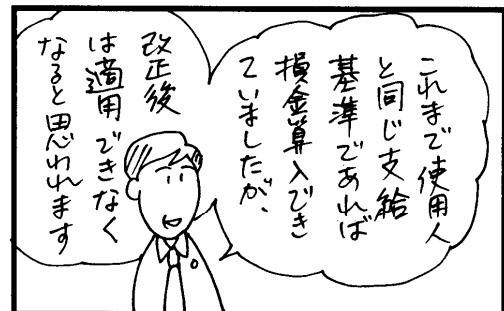 これまで使用人
と同じ支給
基準であれば
損金算入でき
ていましたが、
改正後
は適用できなく
なると思われます